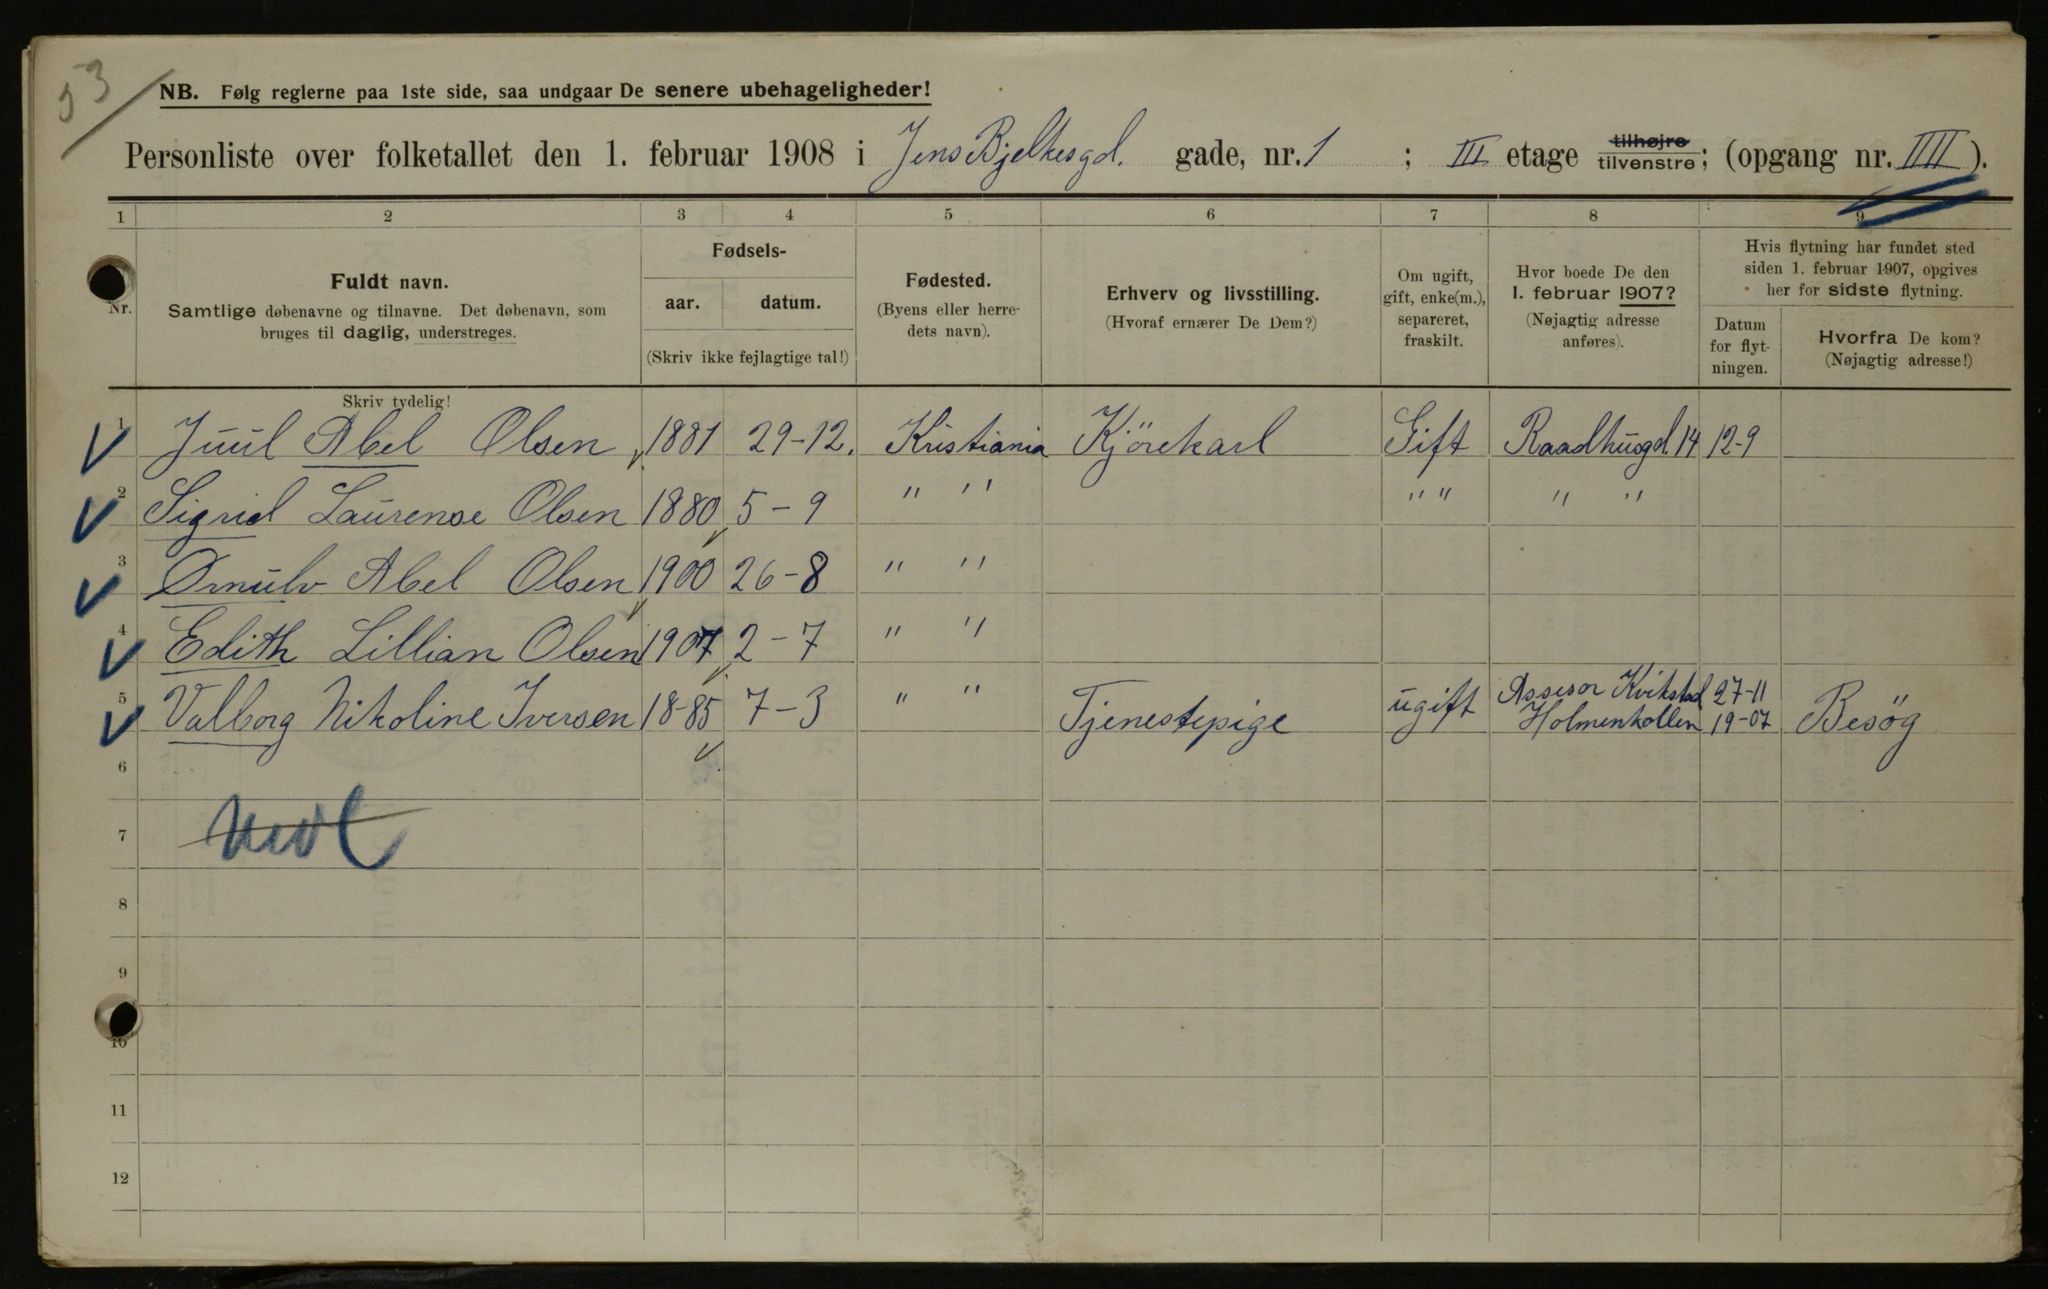 53
NB. Følg reglerne paa 1ste side, saa undgaar De senere ubehageligheder!
Personliste over folketallet den 1. februar 1908 i Jens Bjelkesgd. gade, nr. 1 ; III etage tilhøjre tilvenstre; (opgang nr. IIII ).
1 2 3 4 5 6 7 8 9
Nr.
Fuldt navn.
Samtlige døbenavne og tilnavne. Det døbenavn, som
bruges til daglig, understreges.
Skriv tydelig!
Fødsels-
aar. datum.
(Skriv ikke fejlagtige tal!)
Fødested.
(Byens eller herre-
dets navn).
Erhverv og livsstilling.
(Hvoraf ernærer De Dem?)
Om ugift,
gift, enke(m.),
separeret,
fraskilt.
Hvor boede De den
1. februar 1907?
(Nøjagtig adresse
anføres).
Hvis flytning har fundet sted
siden 1. februar 1907, opgives
her for sidste flytning.
Datum
for flyt-
ningen.
Hvorfra De kom?
(Nøjagtig adresse!)
1 Juul Abel Olsen 1881 29-12. Kristiania Kjörekarl Gift Raadhusgd. 14 12-9
2 Sigrid Laurense Olsen 1880 5-9 " " " " " "
3 Ørnulv Abel Olsen 1900 26-8 " "
4 Edith Lillian Olsen 1907 2-7 " "
5 Valborg Nikoline Iversen 18-85 7-3 " " Tjenestepige ugift Assesor Kvikstad Holmenkollen 27-11 19-07 Besøg
6
7
8
9
10
11
12